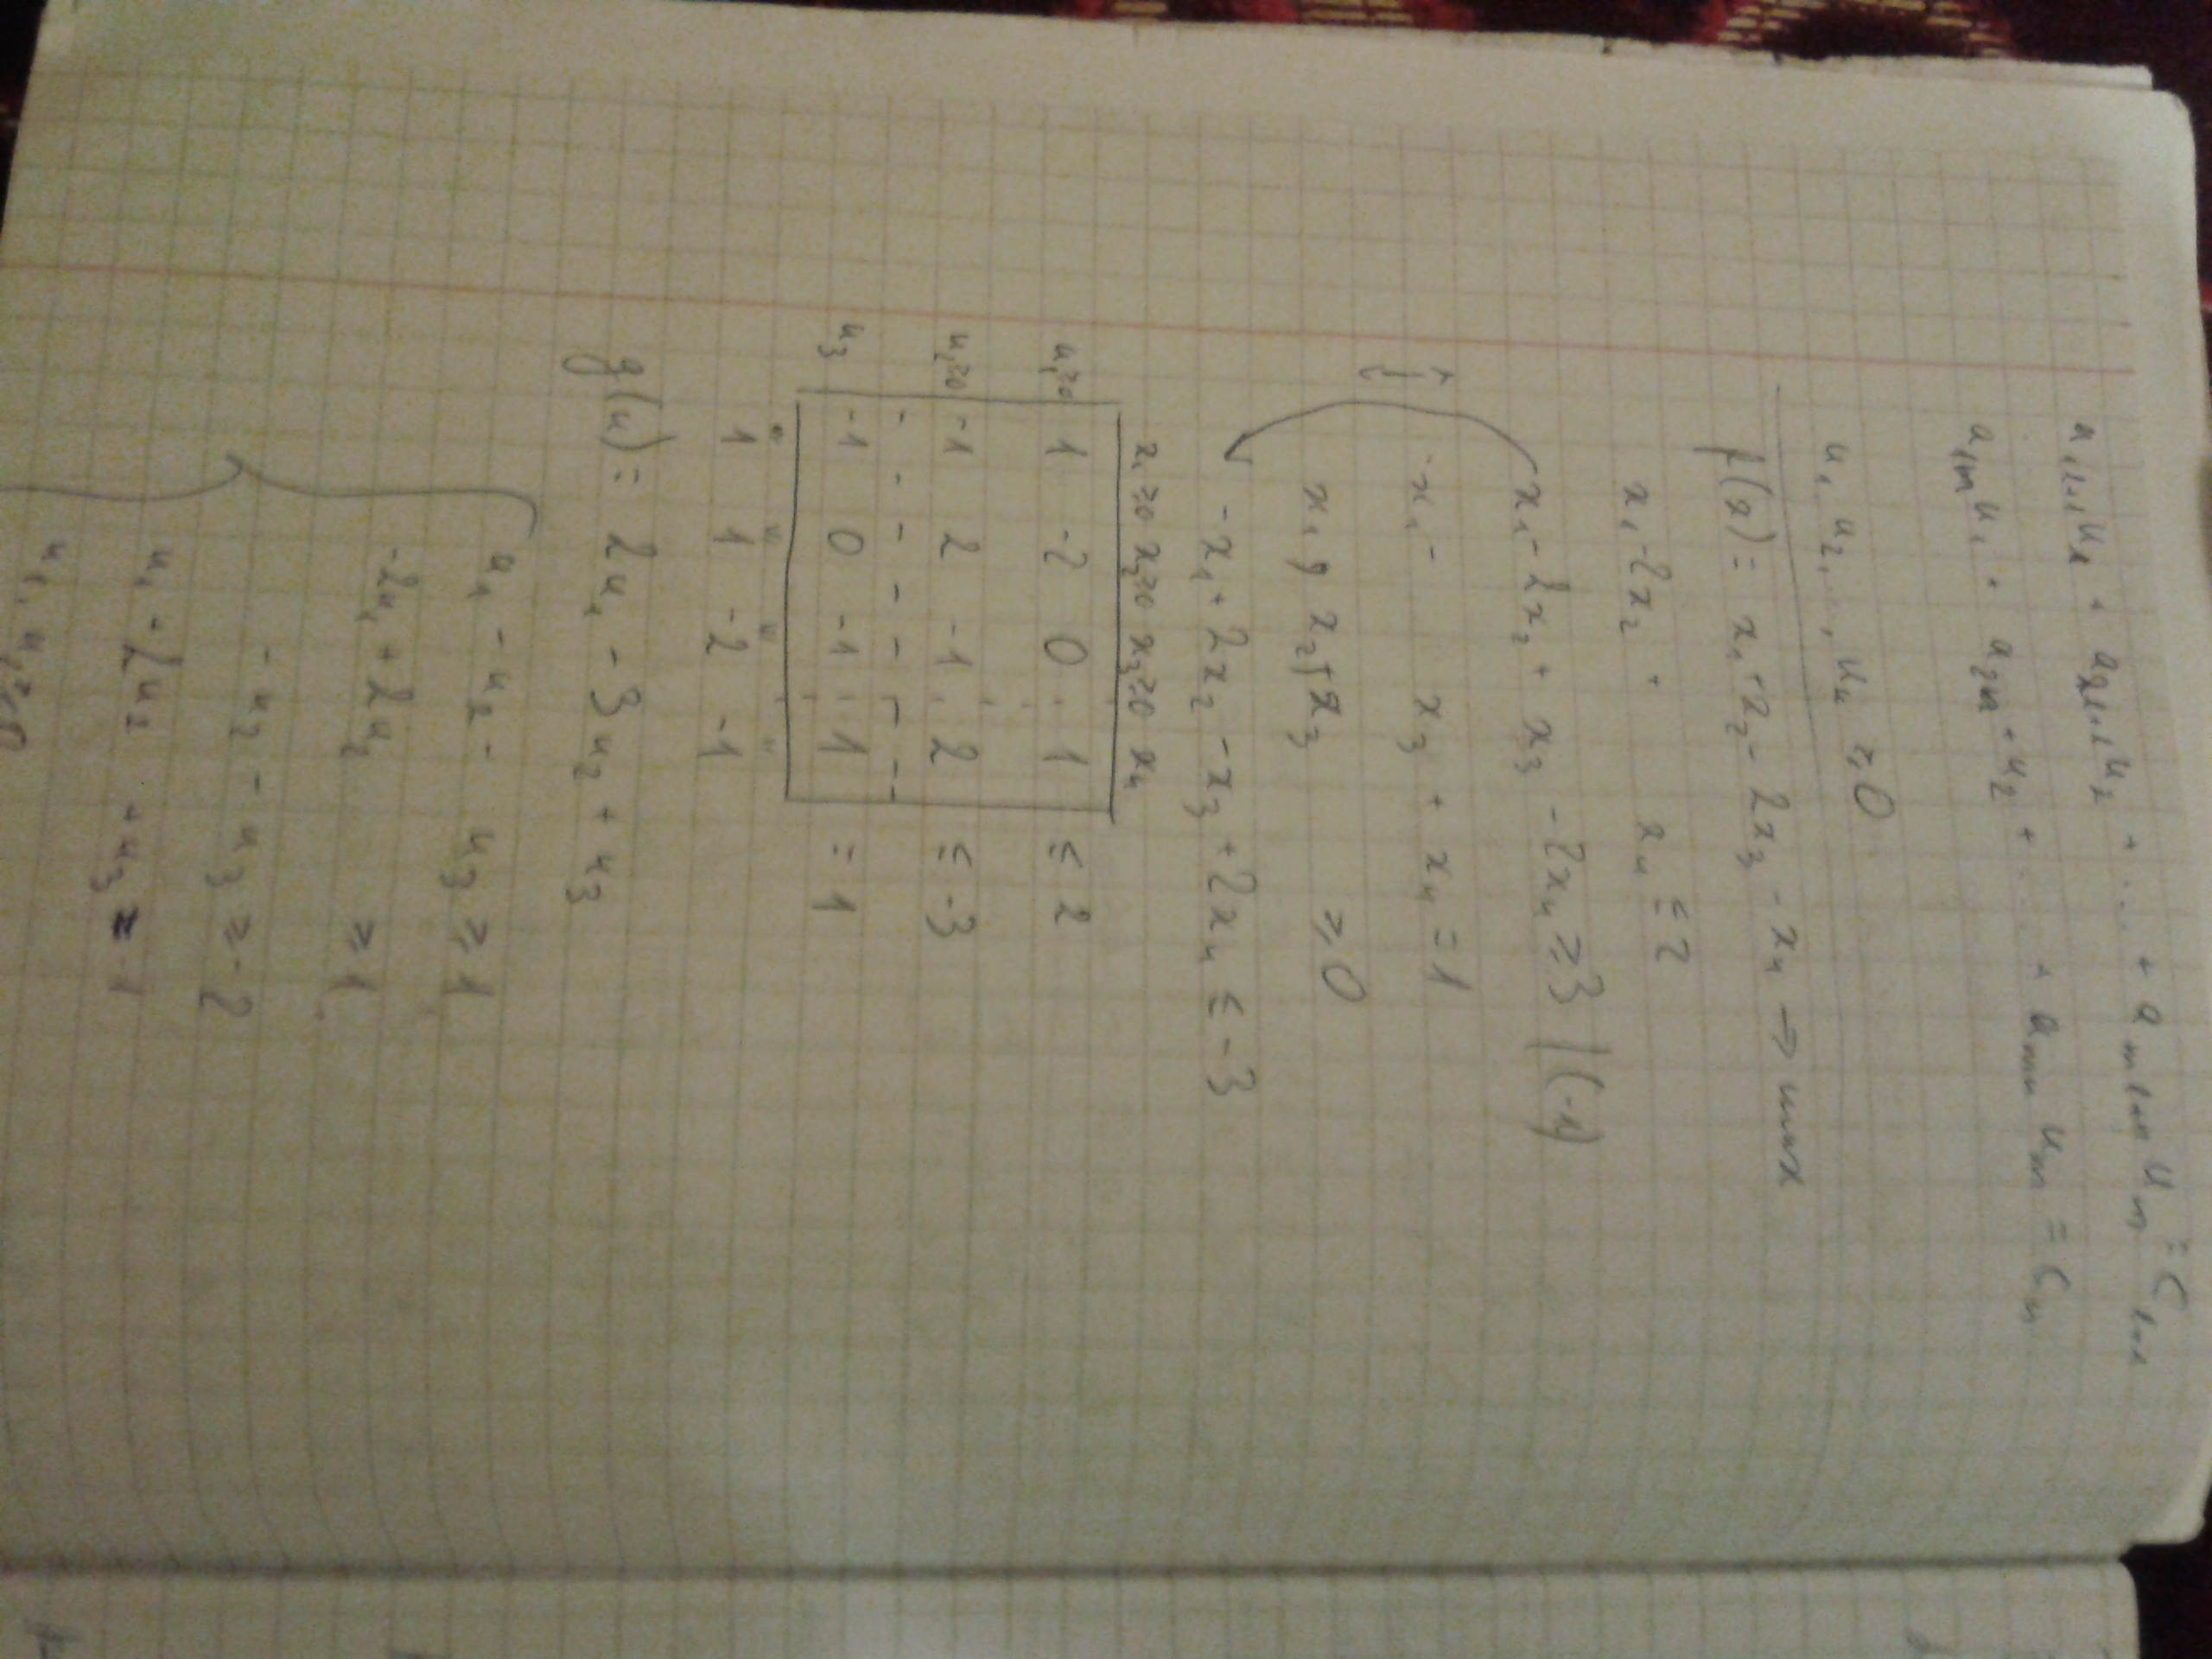 a₁ₗ₊₁u₁ + a₂ₗ₊₁u₂ + ... + aₘₗ₊₁ uₘ = cₗ₊₁
a₁ₙu₁ + a₂ₙ + u₂ + ... + aₘₙ uₘ = cₙ
u₁, u₂, ..., u₄ ≥ 0
f(x) = x₁ + x₂ - 2x₃ - x₄ → max
x₁ - 2x₂ + x₄ ≤ 2
x₁ - 2x₂ + x₃ - 2x₄ ≥ 3 | (-1)
-x₁ - x₃ + x₄ = 1
x₁, x₂, x₃ ≥ 0
-x₁ + 2x₂ - x₃ + 2x₄ ≤ -3
x₁ ≥ 0 x₂ ≥ 0 x₃ ≥ 0 x₄
u₁ ≥ 0 1 -2 0 1 ≤ 2
u₂ ≥ 0 -1 2 -1 2 ≤ -3
u₃ -1 0 -1 1 = 1
1 1 -2 -1
g(u) = 2u₁ - 3u₂ + u₃
u₁ - u₂ - u₃ ≥ 1
-2u₁ + 2u₂ ≥ 1
-u₂ - u₃ ≥ -2
u₁ - 2u₂ + u₃ = -1
u₁, u₂ ≥ 0